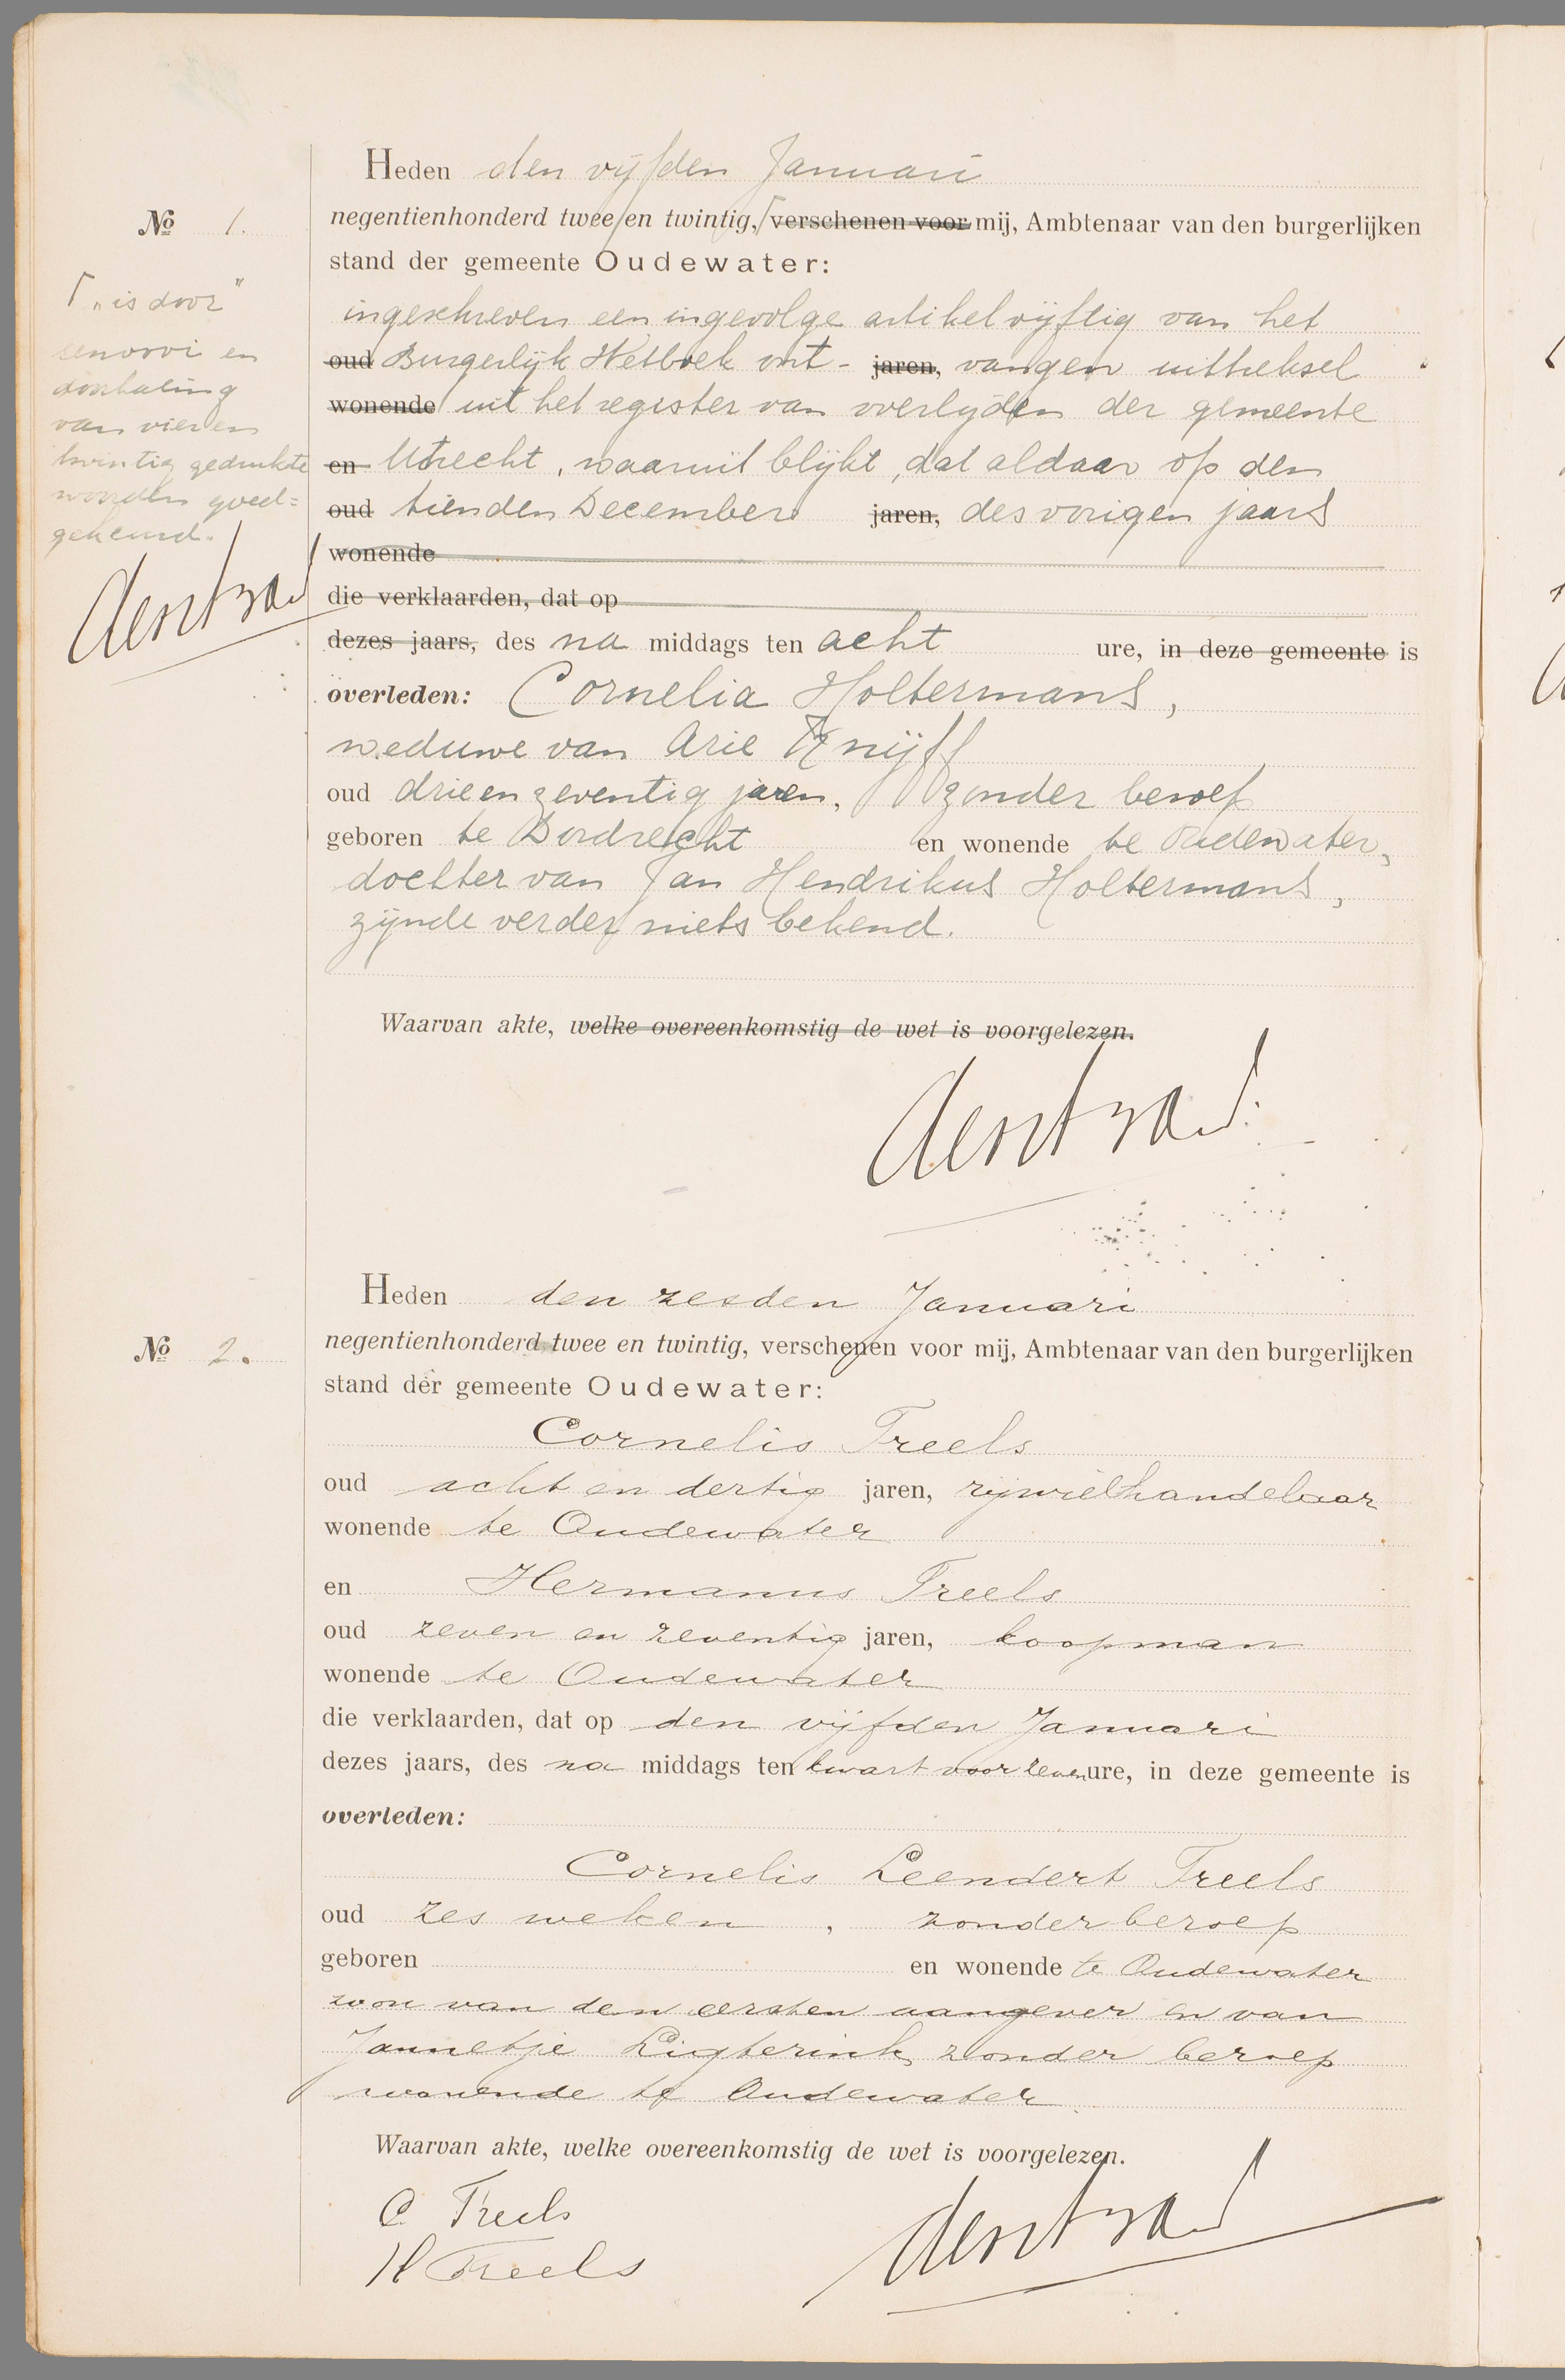 Heden den vijfden Januari
No 1.
negentienhonderd twee en twintig, ┌ verschenen voor mij, Ambtenaar van den burgerlijken
stand der gemeente Oudewater:
┌ „is door"
renvooi en
doorhaling
van vier en
twintig gedrukte
woorden goed=
gekeurd.
ingeschreven een ingevolge artikel vijftig van het
oud Burgerlijk Wetboek ont- jaren, vangen uittreksel
wonende uit het register van overlijden der gemeente
en Utrecht, waaruit blijkt, dat aldaar op den
oud tienden December jaren, des vorigen jaars
wonende
die verklaarden, dat op
dezes jaars, des na middags ten acht ure, in deze gemeente is
overleden: Cornelia Holtermans,
weduwe van Arie Knijff
oud drie en zeventig jaren, zonder beroep
geboren te Dordrecht en wonende te Oudewater,
dochter van Jan Hendrikus Holtermans,
zijnde verder niets bekend.
Waarvan akte, welke overeenkomstig de wet is voorgelezen.
Heden den zesden Januari
No 2.
negentienhonderd twee en twintig, verschenen voor mij, Ambtenaar van den burgerlijken
stand der gemeente Oudewater:
Cornelis Treels
oud acht en dertig jaren, rijwielhandelaar
wonende te Oudewater
en Hermanus Treels
oud zeven en zeventig jaren, koopman
wonende te Oudewater
die verklaarden, dat op den vijfden Januari
dezes jaars, des na middags ten kwart voor zeven ure, in deze gemeente is
overleden:
Cornelis Leendert Treels
oud zes weken, zonder beroep
geboren en wonende te Oudewater
zoon van den eersten aangever en van
Jannetje Ligterink zonder beroep
wonende te Oudewater
Waarvan akte, welke overeenkomstig de wet is voorgelezen.
C. Treels
H Treels